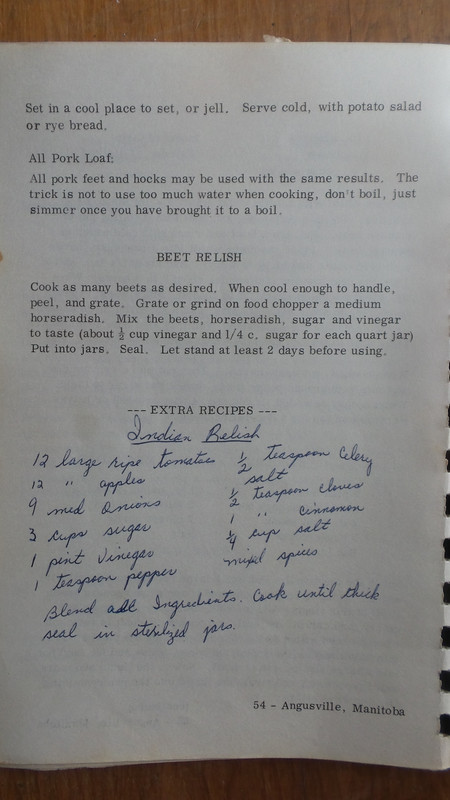 Set in a cool place to set, or jell. Serve cold, with potato salad
or rye bread.
All Pork Loaf:
All pork feet and hocks may be used with the same results. The
trick is not to use too much water when cooking, don't boil, just
simmer once you have brought it to a boil.
BEET RELISH
Cook as many beets as desired. When cool enough to handle,
peel, and grate. Grate or grind on food chopper a medium
horseradish. Mix the beets, horseradish, sugar and vinegar
to taste (about ½ cup vinegar and 1/4 c. sugar for each quart jar)
Put into jars. Seal. Let stand at least 2 days before using.
--- EXTRA RECIPES ---
Indian Relish
12 large ripe tomatoes
12 " apples
9 med Onions
3 cups sugar
1 pint Vinegar
1 teaspoon pepper
½ teaspoon Celery
salt
½ teaspoon cloves
1 " cinnamon
¼ cup salt
mixed spices
Blend all Ingredients. Cook until thick
seal in sterilized jars.
54 - Angusville, Manitoba